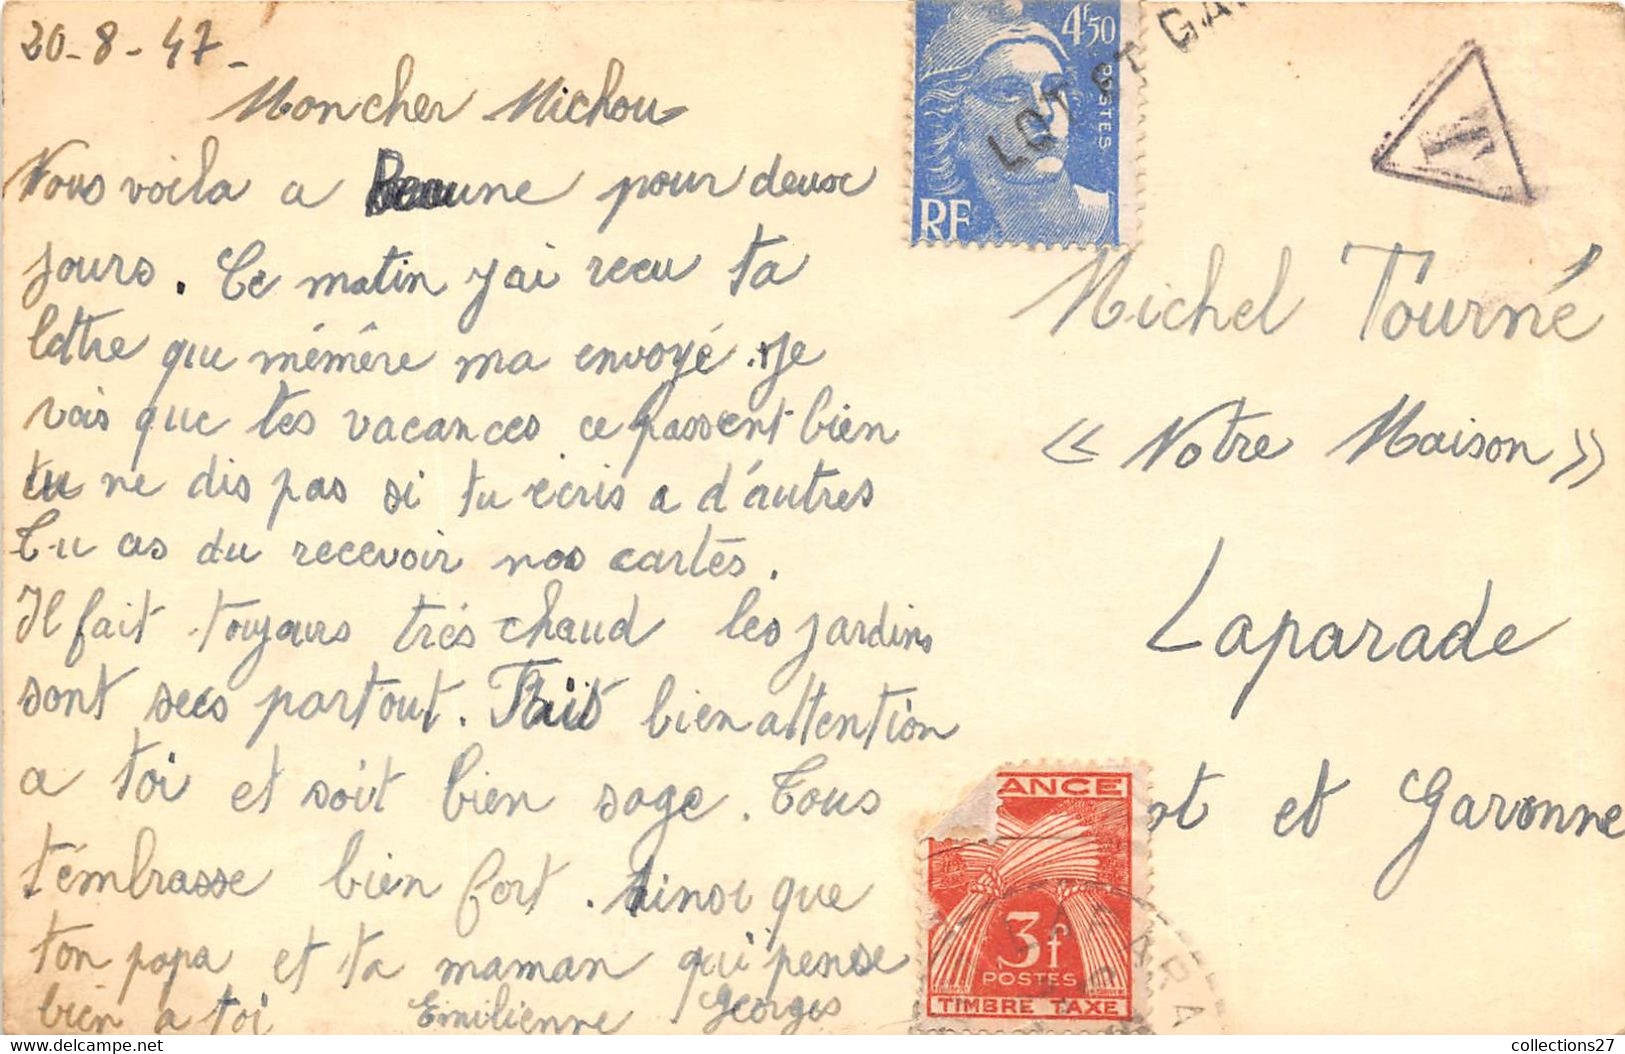 20-8-47-
Mon cher Michou
Nous voila a Beaune pour deux
jours. Ce matin j'ai recu ta
lettre que mémère ma envoyé. Je
vois que tes vacances ce passent bien
tu ne dis pas si tu écris a d'autres
Tu as du recevoir nos cartes.
Il fait toujours très chaud les jardins
sont secs partout. Fait bien attention
a toi et soit bien sage. Tous
t'embrasse bien fort. Ainsi que
ton papa et ta maman qui pense
bien a toi Emilienne Georges
4F50
POSTES
RF
LOT ET GA
T
Michel Tourné
« Notre Maison »
Laparade
ot et Garonne
ANCE
3f
POSTES
TIMBRE TAXE
collections27